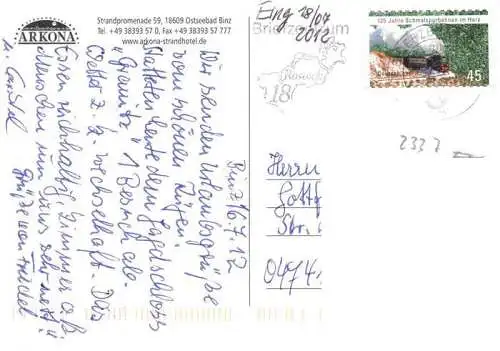 ARKONA
Strandpromenade 59, 18609 Ostseebad Binz
Tel. +49 38393 57 0, Fax +49 38393 57 777
www.arkona-strandhotel.de
Eing 18/07
2012
Briefzentrum
18
125 Jahre Schmalspurbahnen im Harz
45
2332
Binz 16.7.12
Wir senden Urlaubsgrüße
vom schönen Rügen.
Statteten heute dem Jagdschloss
"Granitz" 1 Besuch ab.
Wetter z. Z. wechselhaft. Das
Essen reichhaltig, Zimmer o.k.
Menschen um uns sehr nett!
Grüße von
u.
Herrn
Gottf
Str.
0474